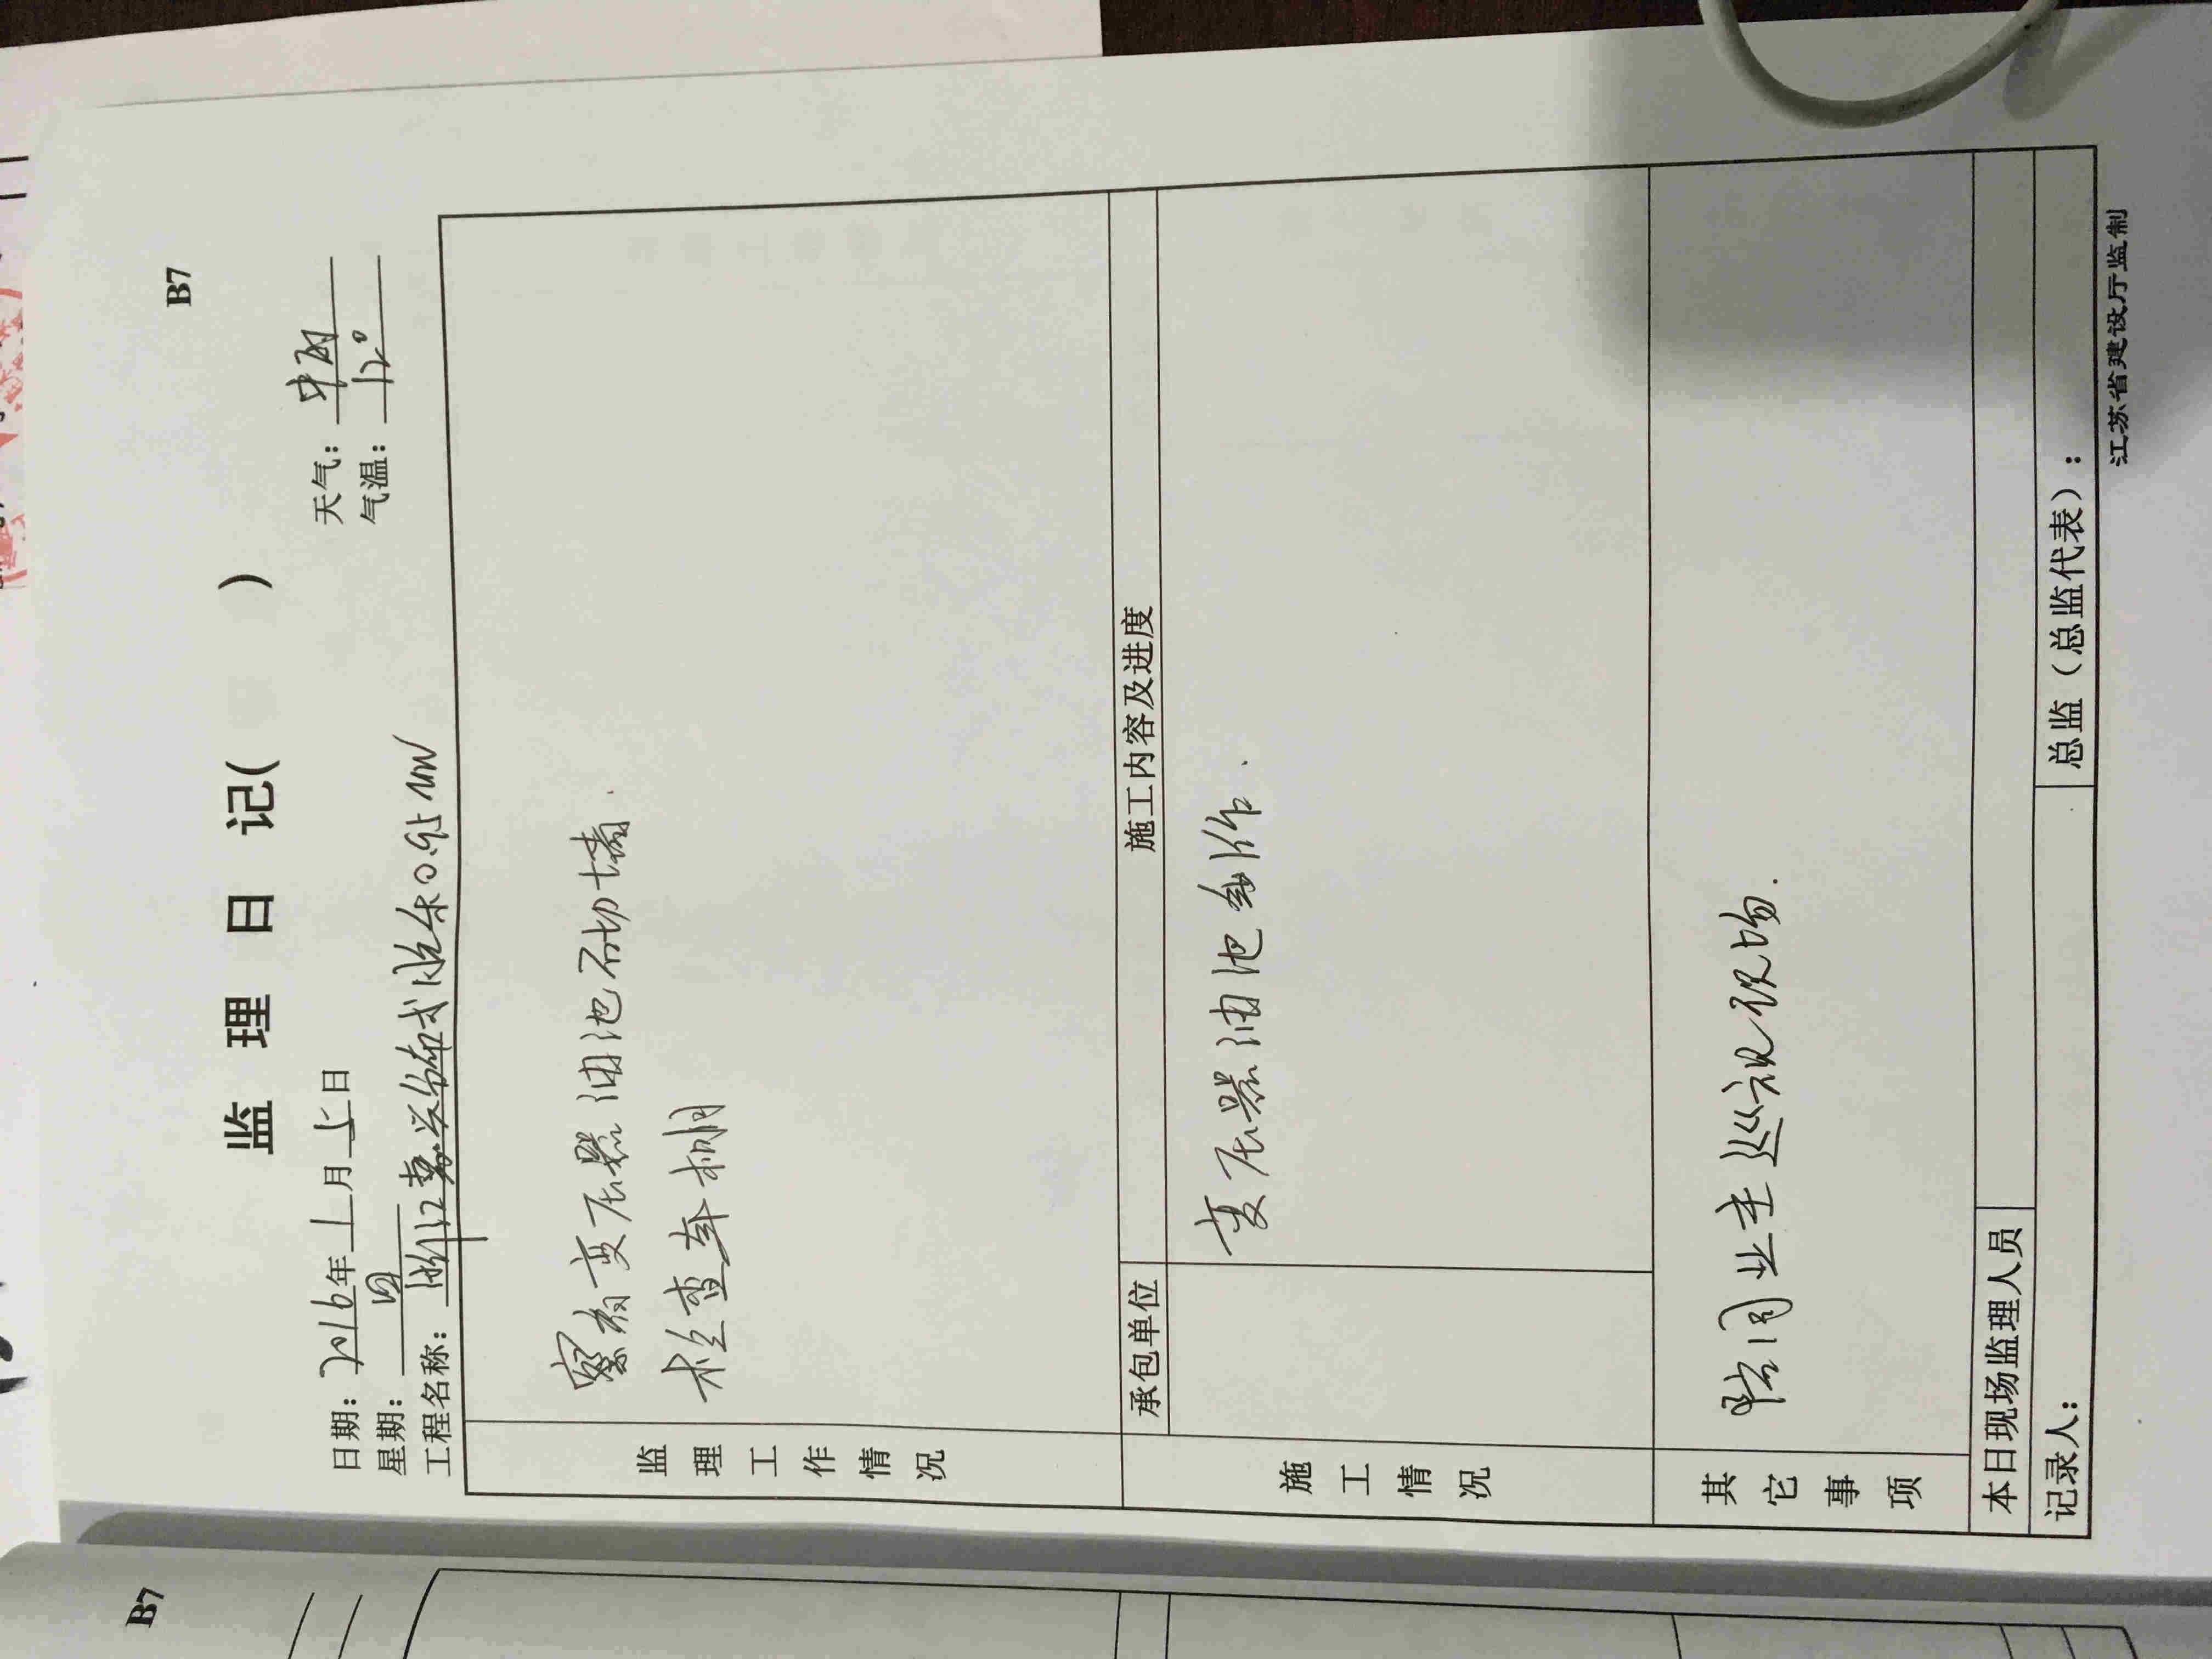 B7
监 理 日 记( )
日期: 2016年1月5日
天气: 中雨
星期:
气温: 12°
工程名称: 浙江嘉兴分布式 0.95MW
监理工作情况
察看变压器油池砌墙
检查车棚
承包单位
施工内容及进度
施工情况
变压器油池制作.
其它事项
陪同业主巡视现场.
本日现场监理人员
记录人:
总监(总监代表):
江苏省建设厅监制
B7